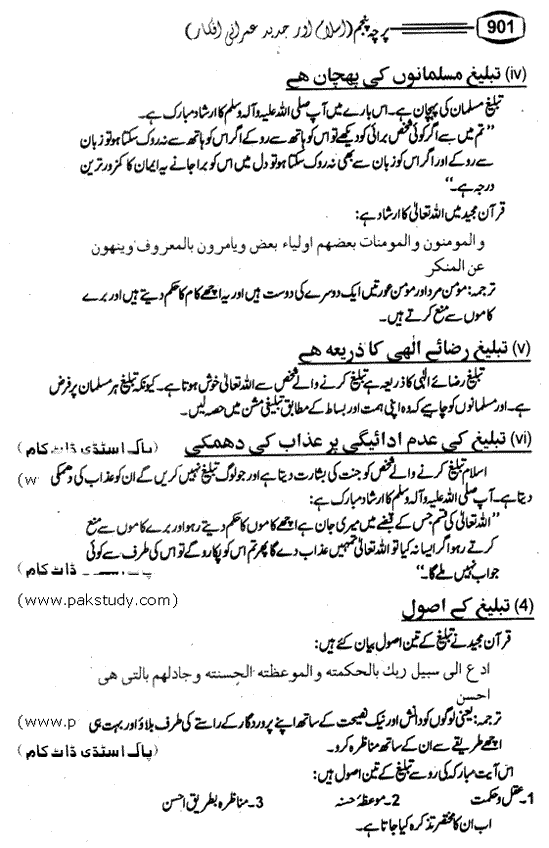 901 پرچہ پنجم (اسلام اور جدید عمرانی افکار)
(iv) تبلیغ مسلمانوں کی پہچان ہے
تبلیغ مسلمان کی پہچان ہے۔ اس بارے میں آپ صلی اللہ علیہ وآلہ وسلم کا ارشاد مبارک ہے۔
”تم میں سے اگر کوئی شخص برائی کو دیکھے تو اس کو ہاتھ سے روکے اگر اس کو ہاتھ سے نہ روک سکتا ہو تو زبان
سے روکے اور اگر اس کو زبان سے بھی نہ روک سکتا ہو تو دل میں اس کو برا جانے یہ ایمان کا کمزور ترین
درجہ ہے۔“
قرآن مجید میں اللہ تعالیٰ کا ارشاد ہے:
والمومنون والمومنات بعضھم اولیاء بعض ویامرون بالمعروف وینھون
عن المنکر
ترجمہ: مومن مرد اور مومن عورتیں ایک دوسرے کی دوست ہیں اور یہ اچھے کام کا حکم دیتے ہیں اور برے
کاموں سے منع کرتے ہیں۔
(v) تبلیغ رضائے الٰھی کا ذریعہ ہے
تبلیغ رضائے الٰہی کا ذریعہ ہے تبلیغ کرنے والے شخص سے اللہ تعالیٰ خوش ہوتا ہے۔ کیونکہ تبلیغ ہر مسلمان پر فرض
ہے۔ اور مسلمانوں کو چاہیے کہ وہ اپنی ہمت اور بساط کے مطابق تبلیغی مشن میں حصہ لیں۔
(vi) تبلیغ کی عدم ادائیگی پر عذاب کی دھمکی (پاک اسٹڈی ڈاٹ کام)
اسلام تبلیغ کرنے والے شخص کو جنت کی بشارت دیتا ہے اور جو لوگ تبلیغ نہیں کریں گے ان کو عذاب کی دھمکی (w
دیتا ہے۔ آپ صلی اللہ علیہ وآلہ وسلم کا ارشاد مبارک ہے:
”اللہ تعالیٰ کی قسم جس کے قبضے میں میری جان ہے اچھے کاموں کا حکم دیتے رہو اور برے کاموں سے منع
کرتے رہو اگر ایسا نہ کیا تو اللہ تعالیٰ تمہیں عذاب دے گا پھر تم اس کو پکارو گے تو اس کی طرف سے کوئی
جواب نہیں ملے گا۔“ ڈاٹ کام)
(4) تبلیغ کے اصول (www.pakstudy.com)
قرآن مجید نے تبلیغ کے تین اصول بیان کئے ہیں:
ادع الی سبیل ربك بالحکمتہ والموعظتہ الحسنتہ وجادلھم بالتی ھی
احسن
ترجمہ: یعنی لوگوں کو دانش اور نیک نصیحت کے ساتھ اپنے پروردگار کے راستے کی طرف بلاؤ اور بہت ہی (www.p
اچھے طریقے سے ان کے ساتھ مناظرہ کرو۔ (پاک اسٹڈی ڈاٹ کام)
اس آیت مبارکہ کی رو سے تبلیغ کے تین اصول ہیں:
1۔ عقل و حکمت 2۔ موعظہ حسنہ 3۔ مناظرہ بطریق احسن
اب ان کا مختصر تذکرہ کیا جاتا ہے۔